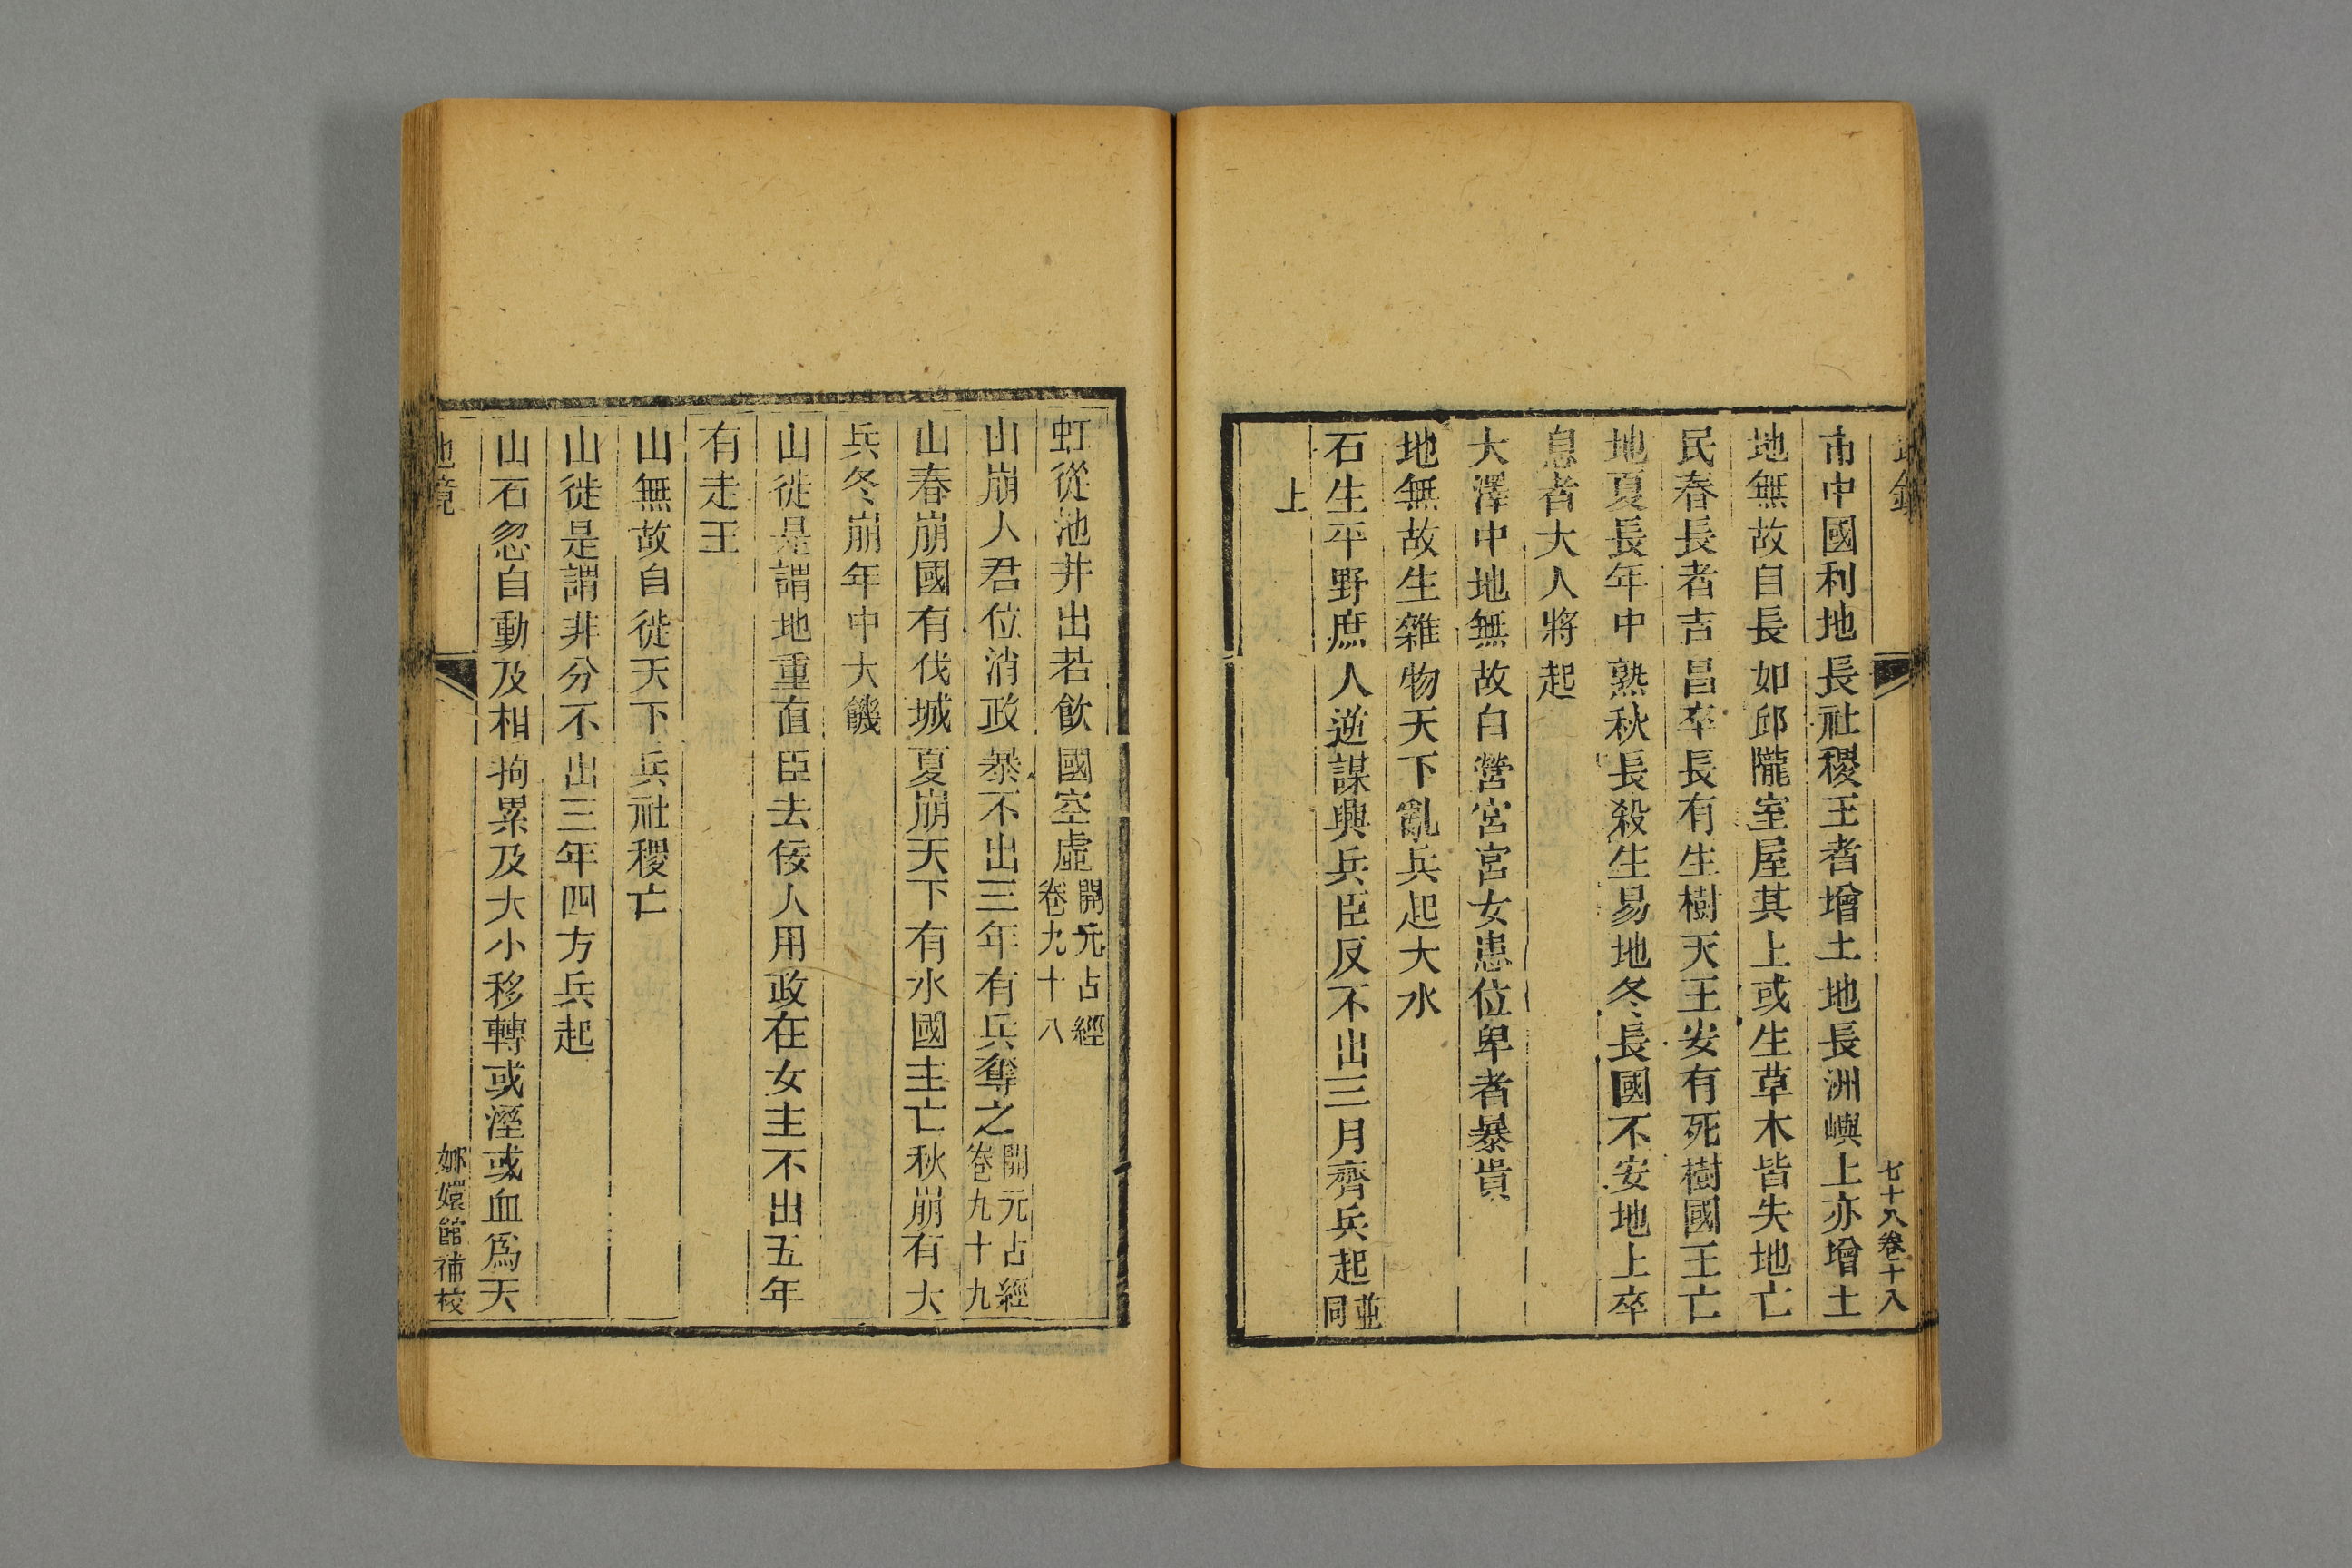 七十八卷十八
市中國利地長社稷王者增土地長洲嶼上亦增土
地無故自長如邱隴室屋其上或生草木皆失地亡
民春長者吉昌卒長有生樹天王安有死樹國王亡
地夏長年中熟秋長殺生易地冬長國不安地上卒
息者大人將起
大澤中地無故自營宮宮女恚位卑者暴貴
地無故生雜物天下亂兵起大水
石生平野庶人逆謀興兵臣反不出三月齊兵起並同
上
虹從池井出若飲國空虛開元占經卷九十八
山崩人君位消政暴不出三年有兵奪之開元占經卷九十九
山春崩國有伐城夏崩天下有水國主亡秋崩有大
兵冬崩年中大饑
山徙是謂地重直臣去佞人用政在女主不出五年
有走王
山無故自徙天下兵社稷亡
山徙是謂非分不出三年四方兵起
山石忽自動及相拘累及大小移轉或溼或血爲天
地鏡
嫏嬛館補校